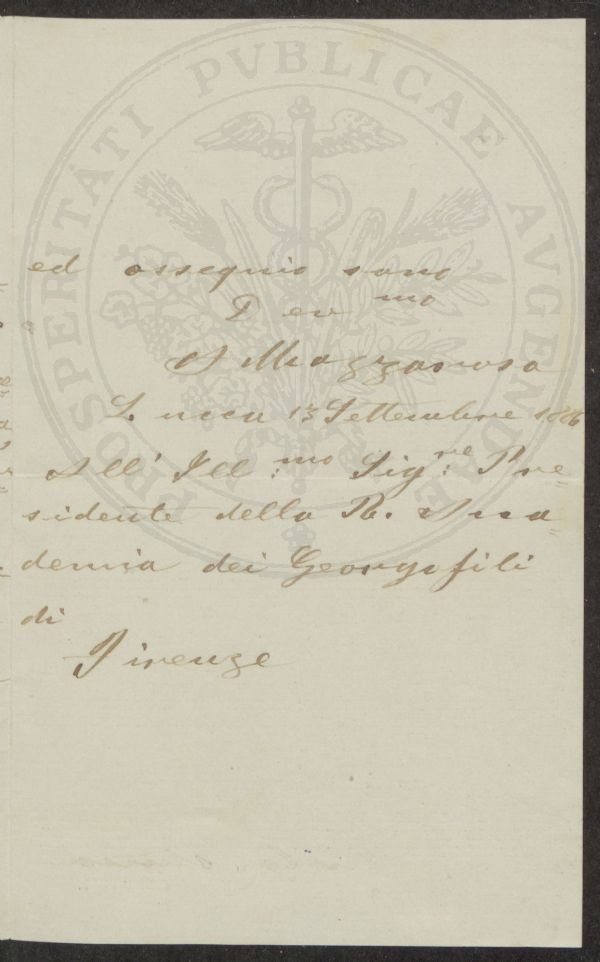 PROSPERITATI PVBLICAE AVGENDAE
ed ossequio sono
Dev mo
A Mazzarosa
Lucca 13 Settembre 1886
All' Ill:mo Sig:re Pre=
sidente della R. Acca=
demia dei Georgofili
di
Firenze